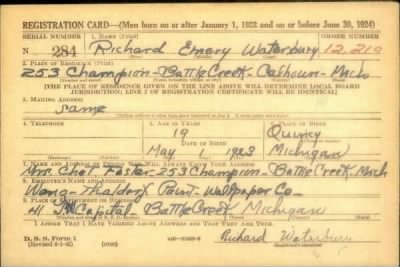 REGISTRATION CARD—(Men born on or after January 1, 1922 and on or before June 30, 1924)
SERIAL NUMBER 1. NAME (Print) ORDER NUMBER
N 284 Richard Emery Waterbury 12,210
2. PLACE OF RESIDENCE (Print)
253 Champion - Battle Creek - Calhoun - Mich
[THE PLACE OF RESIDENCE GIVEN ON THE LINE ABOVE WILL DETERMINE LOCAL BOARD
JURISDICTION; LINE 2 OF REGISTRATION CERTIFICATE WILL BE IDENTICAL]
3. MAILING ADDRESS
Same
4. TELEPHONE 5. AGE IN YEARS 6. PLACE OF BIRTH
19 Quincy
DATE OF BIRTH
May 1 1923 Michigan
7. NAME AND ADDRESS OF PERSON WHO WILL ALWAYS KNOW YOUR ADDRESS
Mrs. Chet Foster - 253 Champion - Battle Creek, Mich
8. EMPLOYER'S NAME AND ADDRESS
Paint - Wallpaper Co -
9. PLACE OF EMPLOYMENT OR BUSINESS
41 Capital Battle Creek Michigan
I AFFIRM THAT I HAVE VERIFIED ABOVE ANSWERS AND THAT THEY ARE TRUE.
D. S. S. Form 1
Richard Waterbury